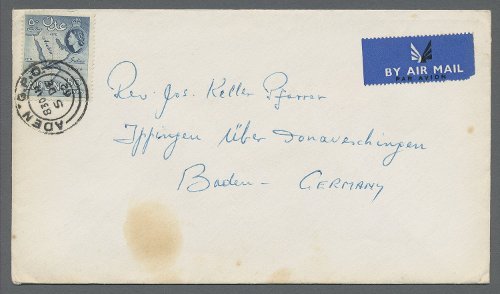 BY AIR MAIL
PAR AVION
ADEN. G.P.O.
Rev. Jos. Keller Pfarrer
Ippingen über Donaueschingen
Baden - GERMANY